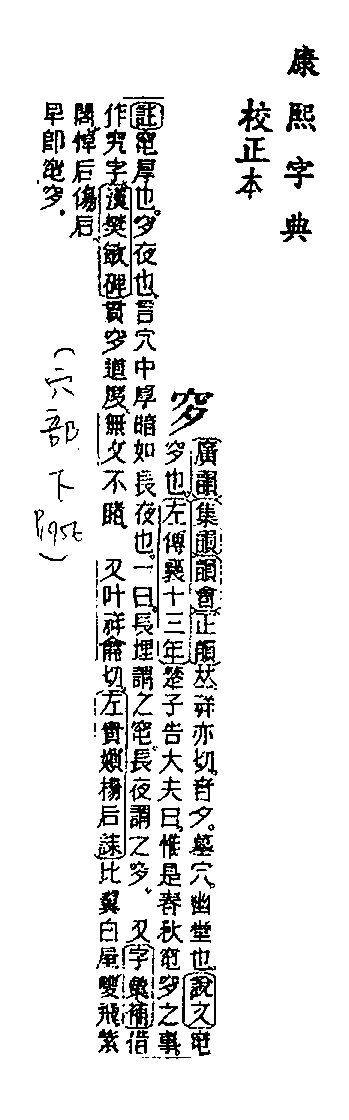 康熙字典
校正本
穸
廣韻集韻韻會正韻𠀤祥亦切。音夕。墓穴。幽堂也。說文窀
穸也。左傳襄十三年楚子告大夫曰。惟是春秋窀穸之事。
註窀厚也。穸夜也。言穴中厚暗如長夜也。一曰。長埋謂之窀。長夜謂之穸。又字彙補借
作究字。漢樊敏碑貫穸道度。無文不睹。又叶祥龠切。左貴嬪楊后誄比翼白屋。雙飛紫
閣。悼后傷后
早即窀穸。
(穴部下 P.956)